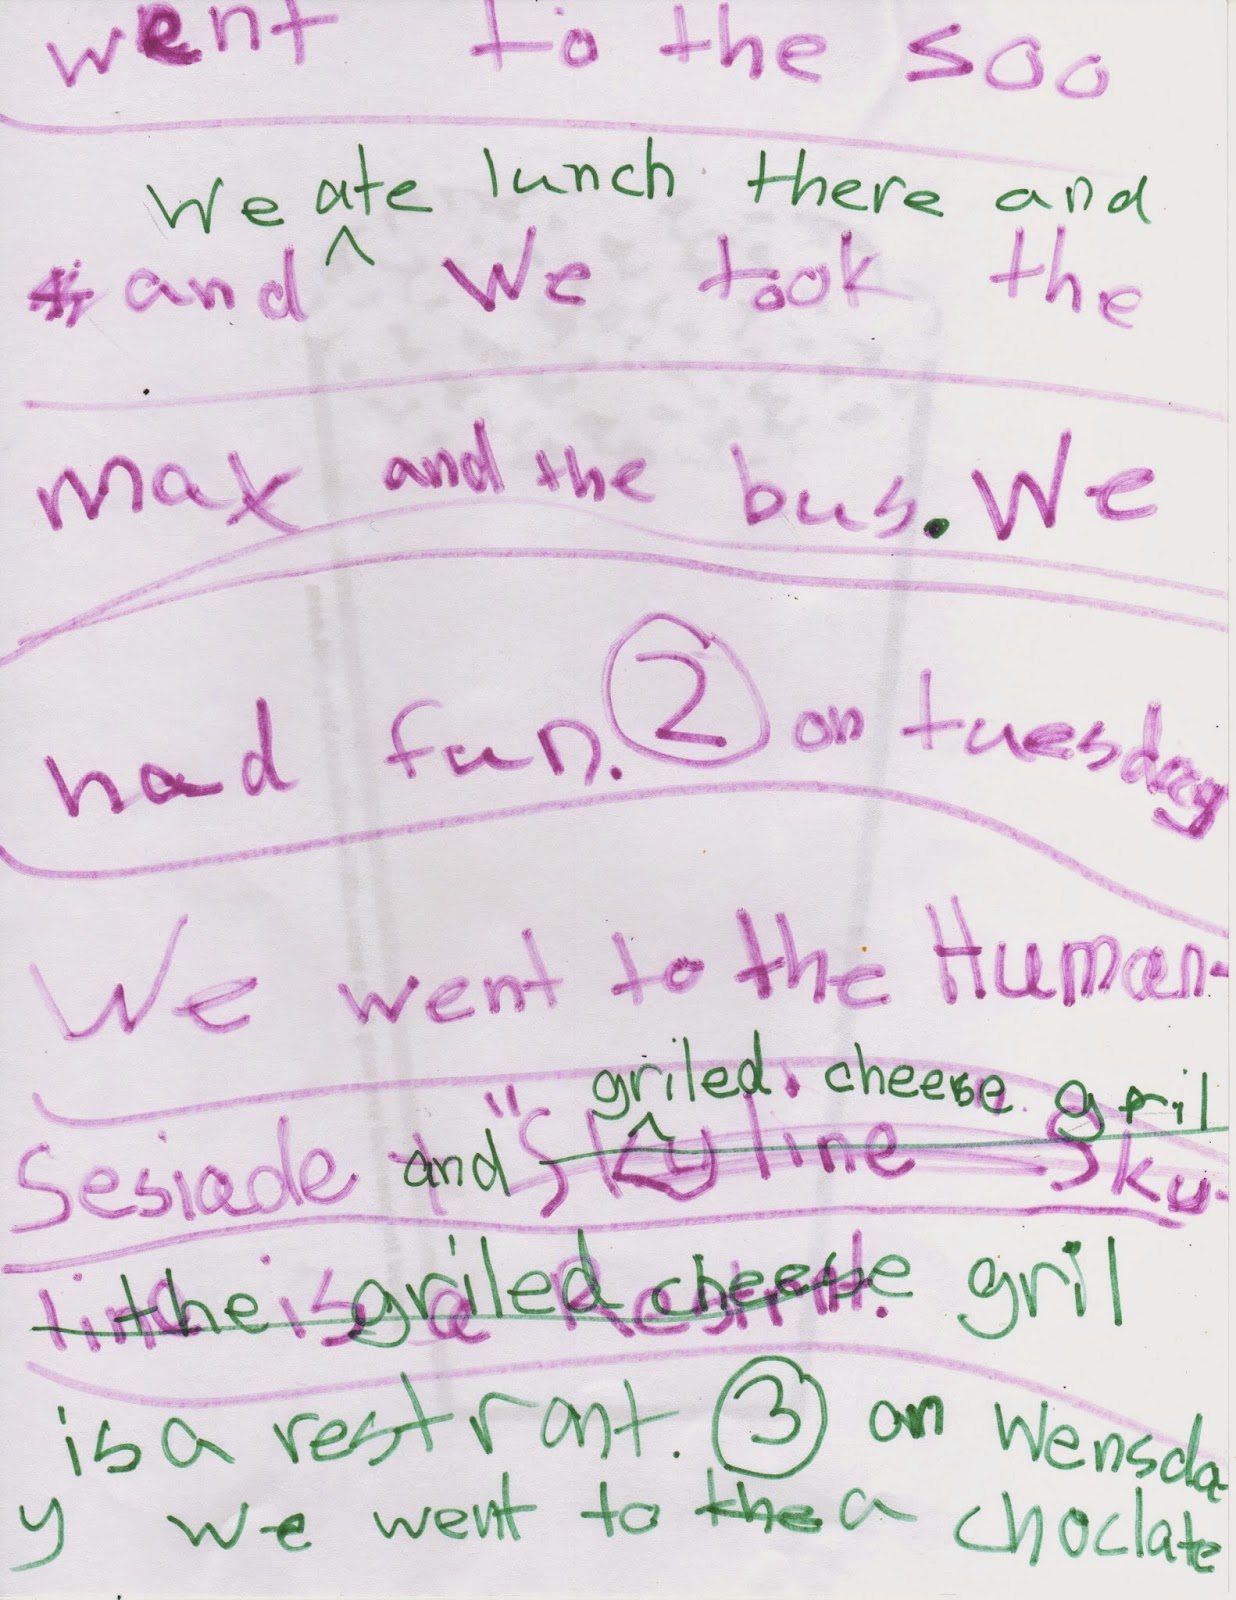 went to the soo
We ate lunch there and
and ^ We took the
max and the bus. We
had fun. 2 on tuesday
We went to the Human-
griled cheese gril
Sesiade and "Skyline Sky-
line is a
the griled cheese gril
is a restrant. 3 on Wensda
y we went to the a choclate